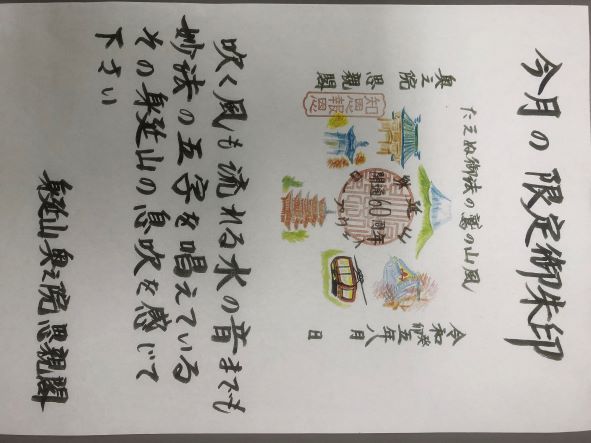 今月の限定御朱印
たえぬ御法の鷲の山風
奥之院
思親閣
知恩報恩
身延山
開通60周年
令和癸卯五年八月 日
吹く風も流れる水の音までも
妙法の五字を唱えている
その身延山の息吹を感じて
下さい
身延山奥之院思親閣